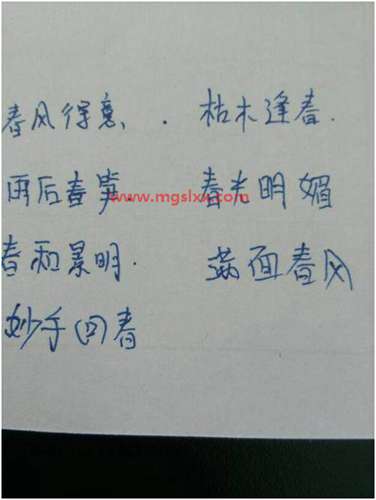 春风得意、. 枯木逢春.
雨后春笋. 春光明媚
www.mgslxx.com
春和景明. 满面春风
妙手回春